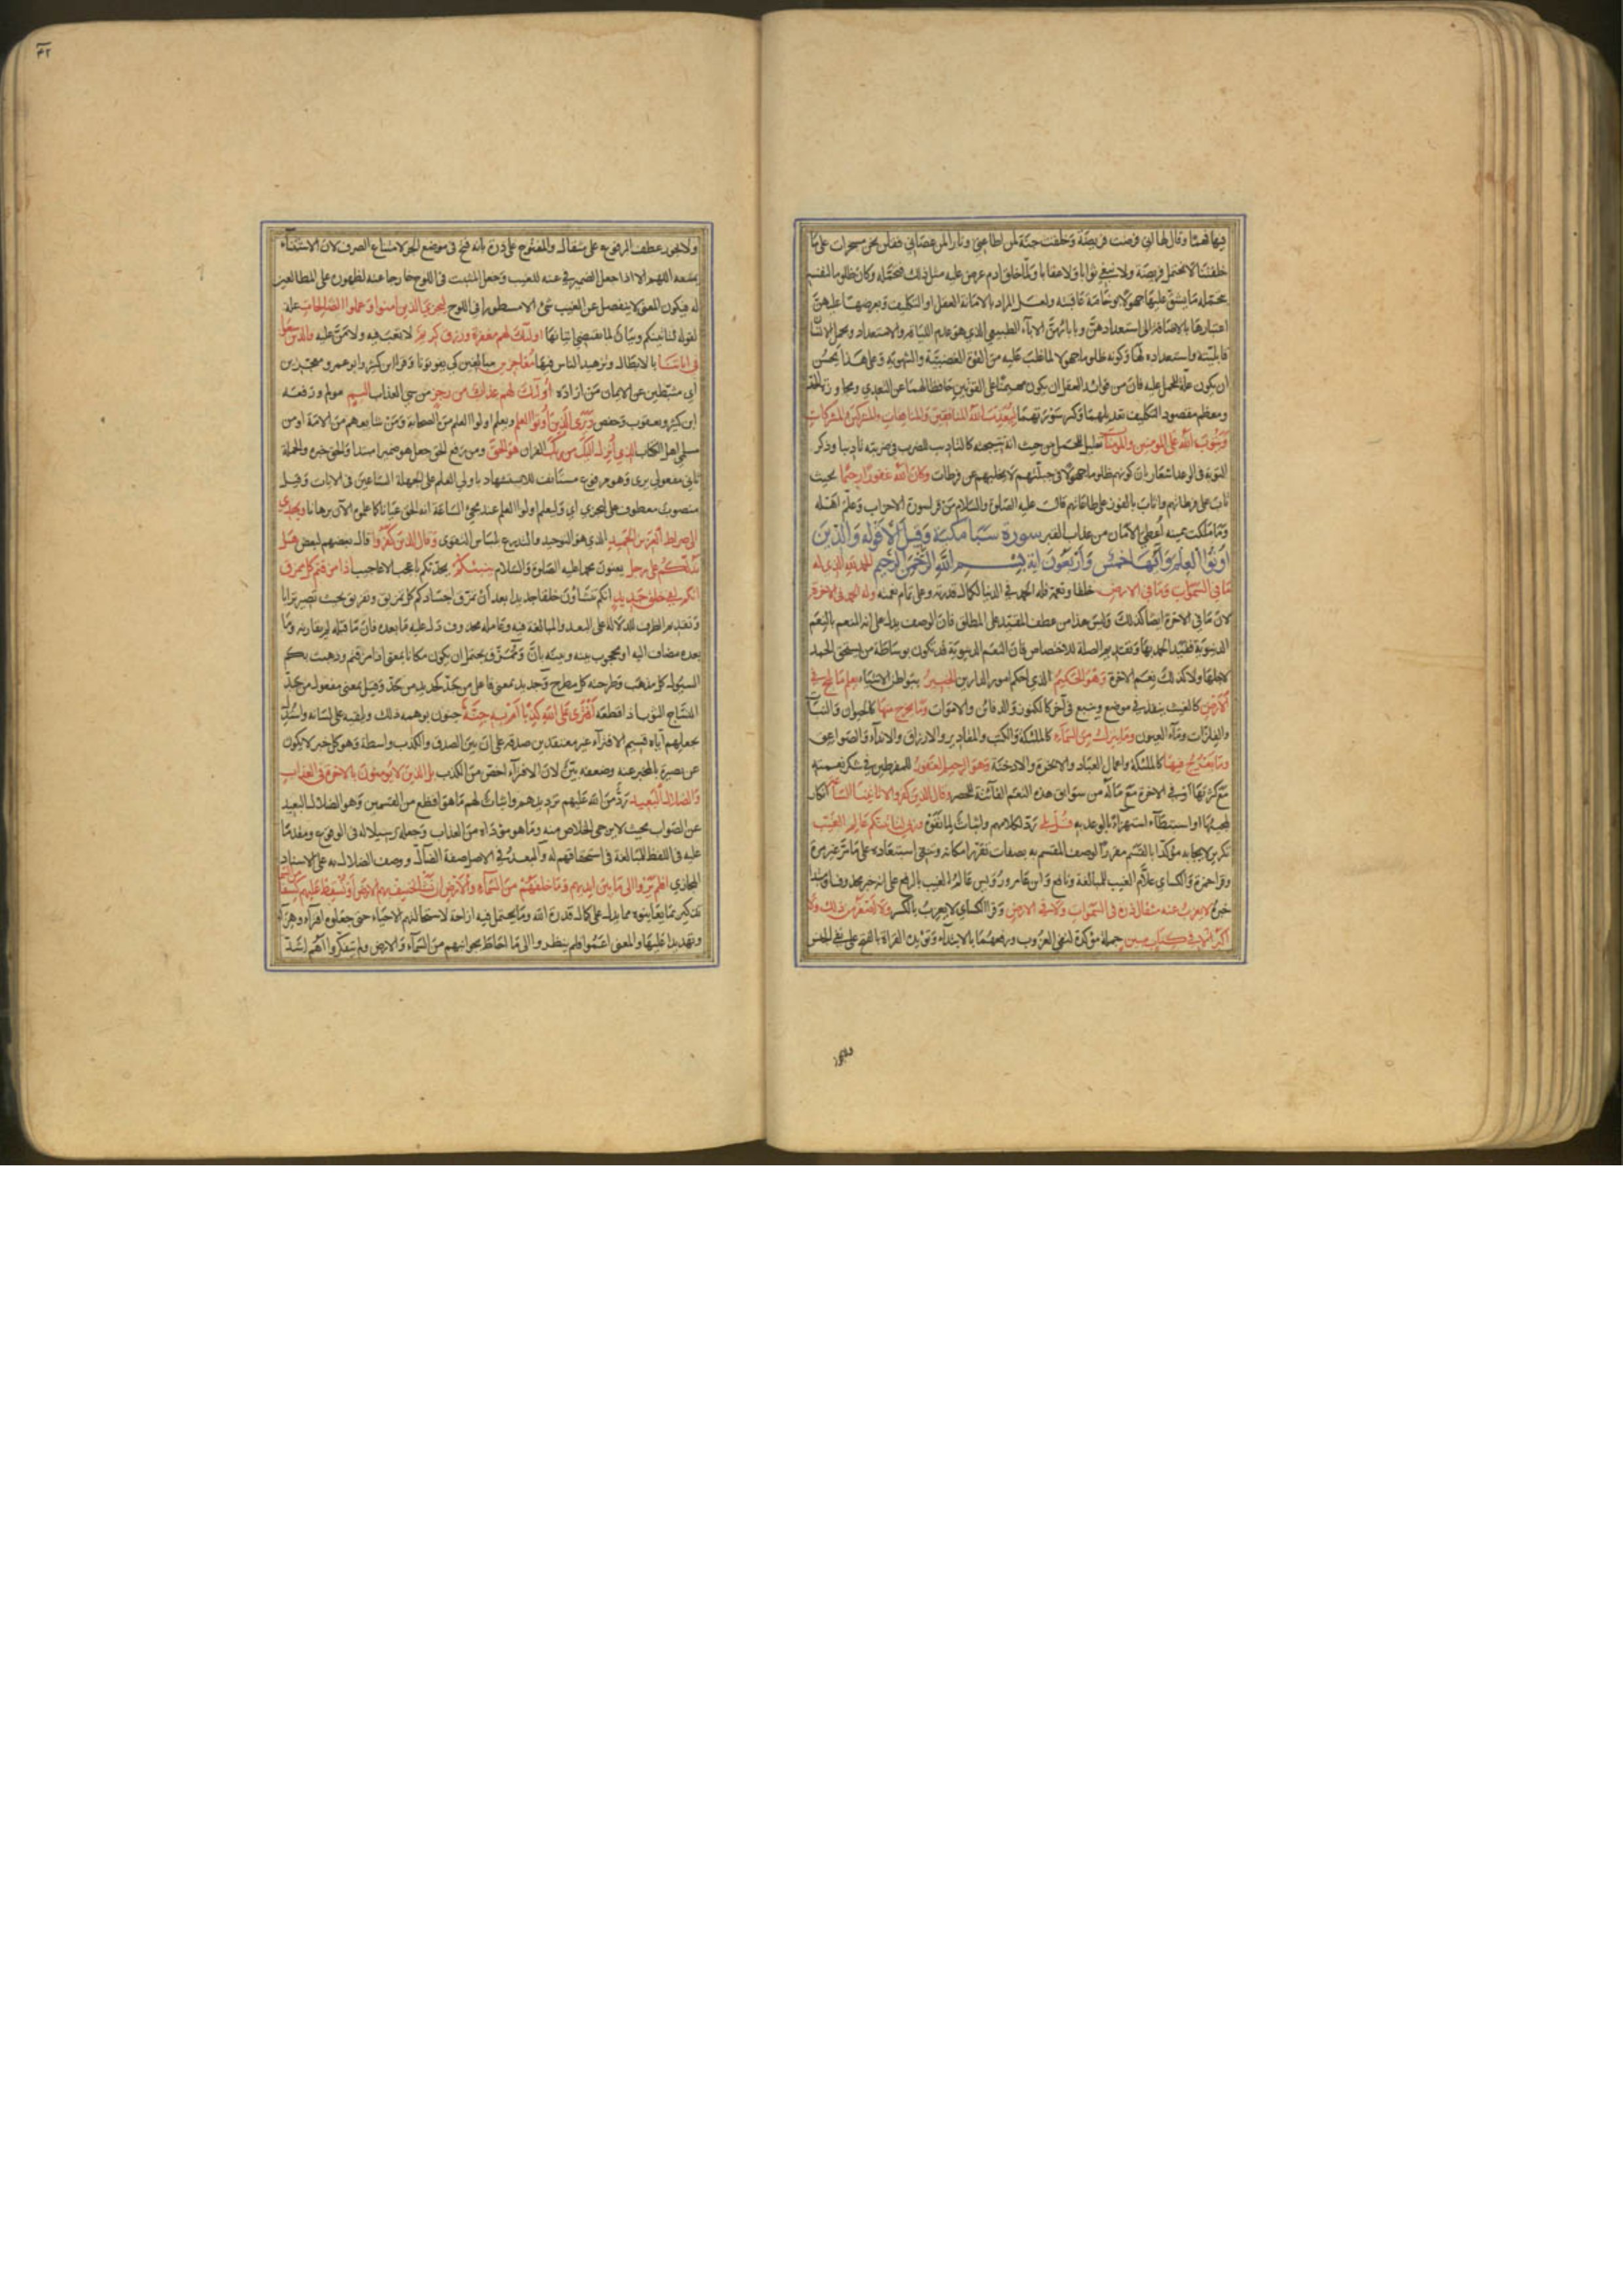 فيها فهما وقال لها اني فرضت فريضة وخلقت جنة لمن اطاعني ونارا لمن عصاني فقلن نحن مسخرات على ما
خلقتنا لا نحتمل فريضة ولا نبتغي ثوابا ولا عقابا ولما خلق ادم عرض عليه مثل ذلك فتحمله وكان ظلوما لنفسه
بتحمله ما يشق عليها جهولا بوخامة عاقبته ولعل المراد بالامانة العقل او التكليف وبعرضها عليهن
اعتبارها بالاضافة الى استعدادهن وبابائهن الاباء الطبيعي الذي هو عدم اللياقة والاستعداد وبحمل الانسان
قابليته واستعداده لها وكونه ظلوما جهولا لما غلب عليه من القوة الغضبية والشهوية وعلى هذا يحسن
ان يكون علة للحمل عليه فان من فوائد العقل ان يكون مهيمنا على القوتين حافظا لهما عن التعدي ومجاوزة الحد
ومعظم مقصود التكليف تعديلهما وكسر سورتهما ليعذب الله المنافقين والمنافقات والمشركين والمشركات
ويتوب الله على المؤمنين والمؤمنات تعليل للحمل من حيث انه نتيجته كالتاديب للضرب في ضربته تاديبا وذكر
التوبة في الوعد اشعار بان كونهم ظلوما جهولا في جبلتهم لا يخليهم عن فرطات وكان الله غفورا رحيما بحيث
تاب على فرطاتهم واثاب بالفوز على طاعاتهم قال عليه الصلوة والسلام من قرا سورة الاحزاب وعلمها اهله
وما ملكت يمينه اعطي الامان من عذاب القبر سورة سبا مكية وقيل الا قوله والذين
اوتوا العلم وآيها خمس واربعون اية بسم الله الرحمن الرحيم الحمد لله الذي له
ما في السموات وما في الارض خلقا ونعمة فله الحمد في الدنيا لكمال قدرته وعلى تمام نعمته وله الحمد في الاخرة
لان ما في الاخرة ايضا كذلك وليس هذا من عطف المقيد على المطلق فان الوصف يدل على انه المنعم بالنعم
الدنيوية فقيد الحمد بها وتقديم الصلة للاختصاص فان النعم الدنيوية قد تكون بوساطة من يستحق الحمد
لاجلها ولا كذلك نعم الاخرة وهو الحكيم الذي احكم امور الدارين الخبير ببواطن الاشياء يعلم ما يلج في
الارض كالغيث ينفذ في موضع وينبع في آخر كالكنوز والدفائن والاموات وما يخرج منها كالحيوان والنبات
والفلزات وماء العيون وما ينزل من السماء كالملئكة والكتب والمقادير والارزاق والانداء والصواعق
وما يعرج فيها كالملئكة واعمال العباد والابخرة والادخنة وهو الرحيم الغفور للمفرطين في شكر نعمته
مع كثرتها او في الاخرة مع ماله من سوابق هذه النعم الفائتة للحصر وقال الذين كفروا لا تاتينا الساعة انكار
لمجيئها او استبطاء استهزاء بالوعد به قل بلى رد لكلامهم واثبات لما نفوه وربي لتاتينكم عالم الغيب
تكرير لايجابه مؤكدا بالقسم مقررا لوصف المقسم به بصفات تقرر امكانه وتنفي استبعاده على ما مر غير مرة
وقرا حمزة والكسائي علام الغيب للمبالغة ونافع وابن عامر ورويس عالم الغيب بالرفع على انه خبر محذوف او مبتدا
خبره لا يعزب عنه مثقال ذرة في السموات ولا في الارض وقرا الكسائي لا يعزب بالكسر ولا اصغر من ذلك ولا
اكبر الا في كتاب مبين جملة مؤكدة لنفي العزوب ورفعهما بالابتداء وتؤيده القراة بالفتح على نفي الجنس
ولا يجوز عطف المرفوع على مثقال والمفتوح على ذرة بانه فتح في موضع الجر لامتناع الصرف لان الاستثناء
يمنعه اللهم الا اذا جعل الضمير في عنه للغيب وجعل المثبت في اللوح خارجا عنه لظهوره على المطالعين
له فيكون المعنى لا ينفصل عن الغيب شئ الا مسطورا في اللوح ليجزي الذين امنوا وعملوا الصالحات علة
لقوله لتاتينكم وبيان لما يقتضي اتيانها اولئك لهم مغفرة ورزق كريم لا تعب فيه ولا من عليه والذين سعوا
في اياتنا بالابطال وتزهيد الناس فيها معاجزين مسابقين كي يفوتونا وقرا ابن كثير وابو عمرو معجزين
اي مثبطين عن الايمان من اراده اولئك لهم عذاب من رجز من سئ العذاب اليم مولم ورفعه
ابن كثير ويعقوب وحفص ويرى الذين اوتوا العلم ويعلم اولوا العلم من الصحابة ومن شايعهم من الامة او من
مسلمي اهل الكتاب الذي انزل اليك من ربك القران هو الحق ومن رفع الحق جعل هو ضميرا مبتدا والحق خبره والجملة
ثاني مفعولي يرى وهو مرفوع مستانف للاستشهاد باولي العلم على الجهلة الساعين في الايات وقيل
منصوب معطوف على ليجزي اي وليعلم اولوا العلم عند مجئ الساعة انه الحق عيانا كما علموه الآن برهانا ويهدي
الى صراط العزيز الحميد الذي هو التوحيد والتدرع بلباس التقوى وقال الذين كفروا قال بعضهم لبعض هل
ندلكم على رجل يعنون محمدا عليه الصلوة والسلام ينبئكم يحدثكم باعجب الاعاجيب اذا مزقتم كل ممزق
انكم لفي خلق جديد انكم تنشاون خلقا جديدا بعد ان تمزق اجسادكم كل تمزيق وتفريق بحيث تصير ترابا
وتقديم الظرف للدلالة على البعد والمبالغة فيه وعامله محذوف دل عليه ما بعده فان ما قبله لم يقارنه وما
بعده مضاف اليه او محجوب بينه وبينه بان وممزق يحتمل ان يكون مكانا بمعنى اذا مزقتم وذهبت بكم
السيول كل مذهب وطرحته كل مطرح وجديد بمعنى فاعل من جد كحديد من حد وقيل بمعنى مفعول من جد
النساج الثوب اذا قطعه افترى على الله كذبا ام به جنة جنون يوهمه ذلك ويلقيه على لسانه واستدل
بجعلهم اياه قسيم الافتراء غير معتقدين صدقه على ان بين الصدق والكذب واسطة وهو كل خبر لا يكون
عن بصيرة بالمخبر عنه وضعفه بين لان الافتراء اخص من الكذب بل الذين لا يؤمنون بالاخرة في العذاب
والضلال البعيد رد من الله عليهم ترديدهم واثبات لهم ما هو افظع من القسمين وهو الضلال البعيد
عن الصواب بحيث لا يرجى الخلاص منه وما هو مؤداه من العذاب وجعله رسيلا له في الوقوع ومقدما
عليه في اللفظ للمبالغة في استحقاقهم له والبعد في الاصل صفة الضال ووصف الضلال به على الاسناد
المجازي افلم يروا الى ما بين ايديهم وما خلفهم من السماء والارض ان نشا نخسف بهم الارض او نسقط عليهم كسفا من السماء
تذكير بما يعاينونه مما يدل على كمال قدرة الله وما يحتمل فيه ازاحة لاستحالتهم الاحياء حتى جعلوه افتراء وهزءا
وتهديدا عليها والمعنى اعموا فلم ينظروا الى ما احاط بجوانبهم من السماء والارض ولم يتفكروا اهم اشد